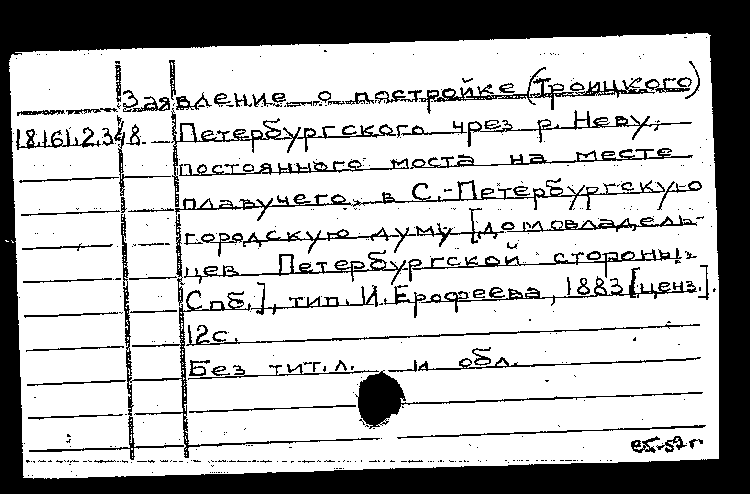 Заявление о постройке (Троицкого)
18.161.2.348 Петербургского чрез р. Неву,
постоянного моста на месте
плавучего, в С.-Петербургскую
городскую думу [домовладель-
цев Петербургской стороны.
Спб.], тип. И. Ерофеева, 1883 [ценз.].
12с.
Без тит.л. и обл.